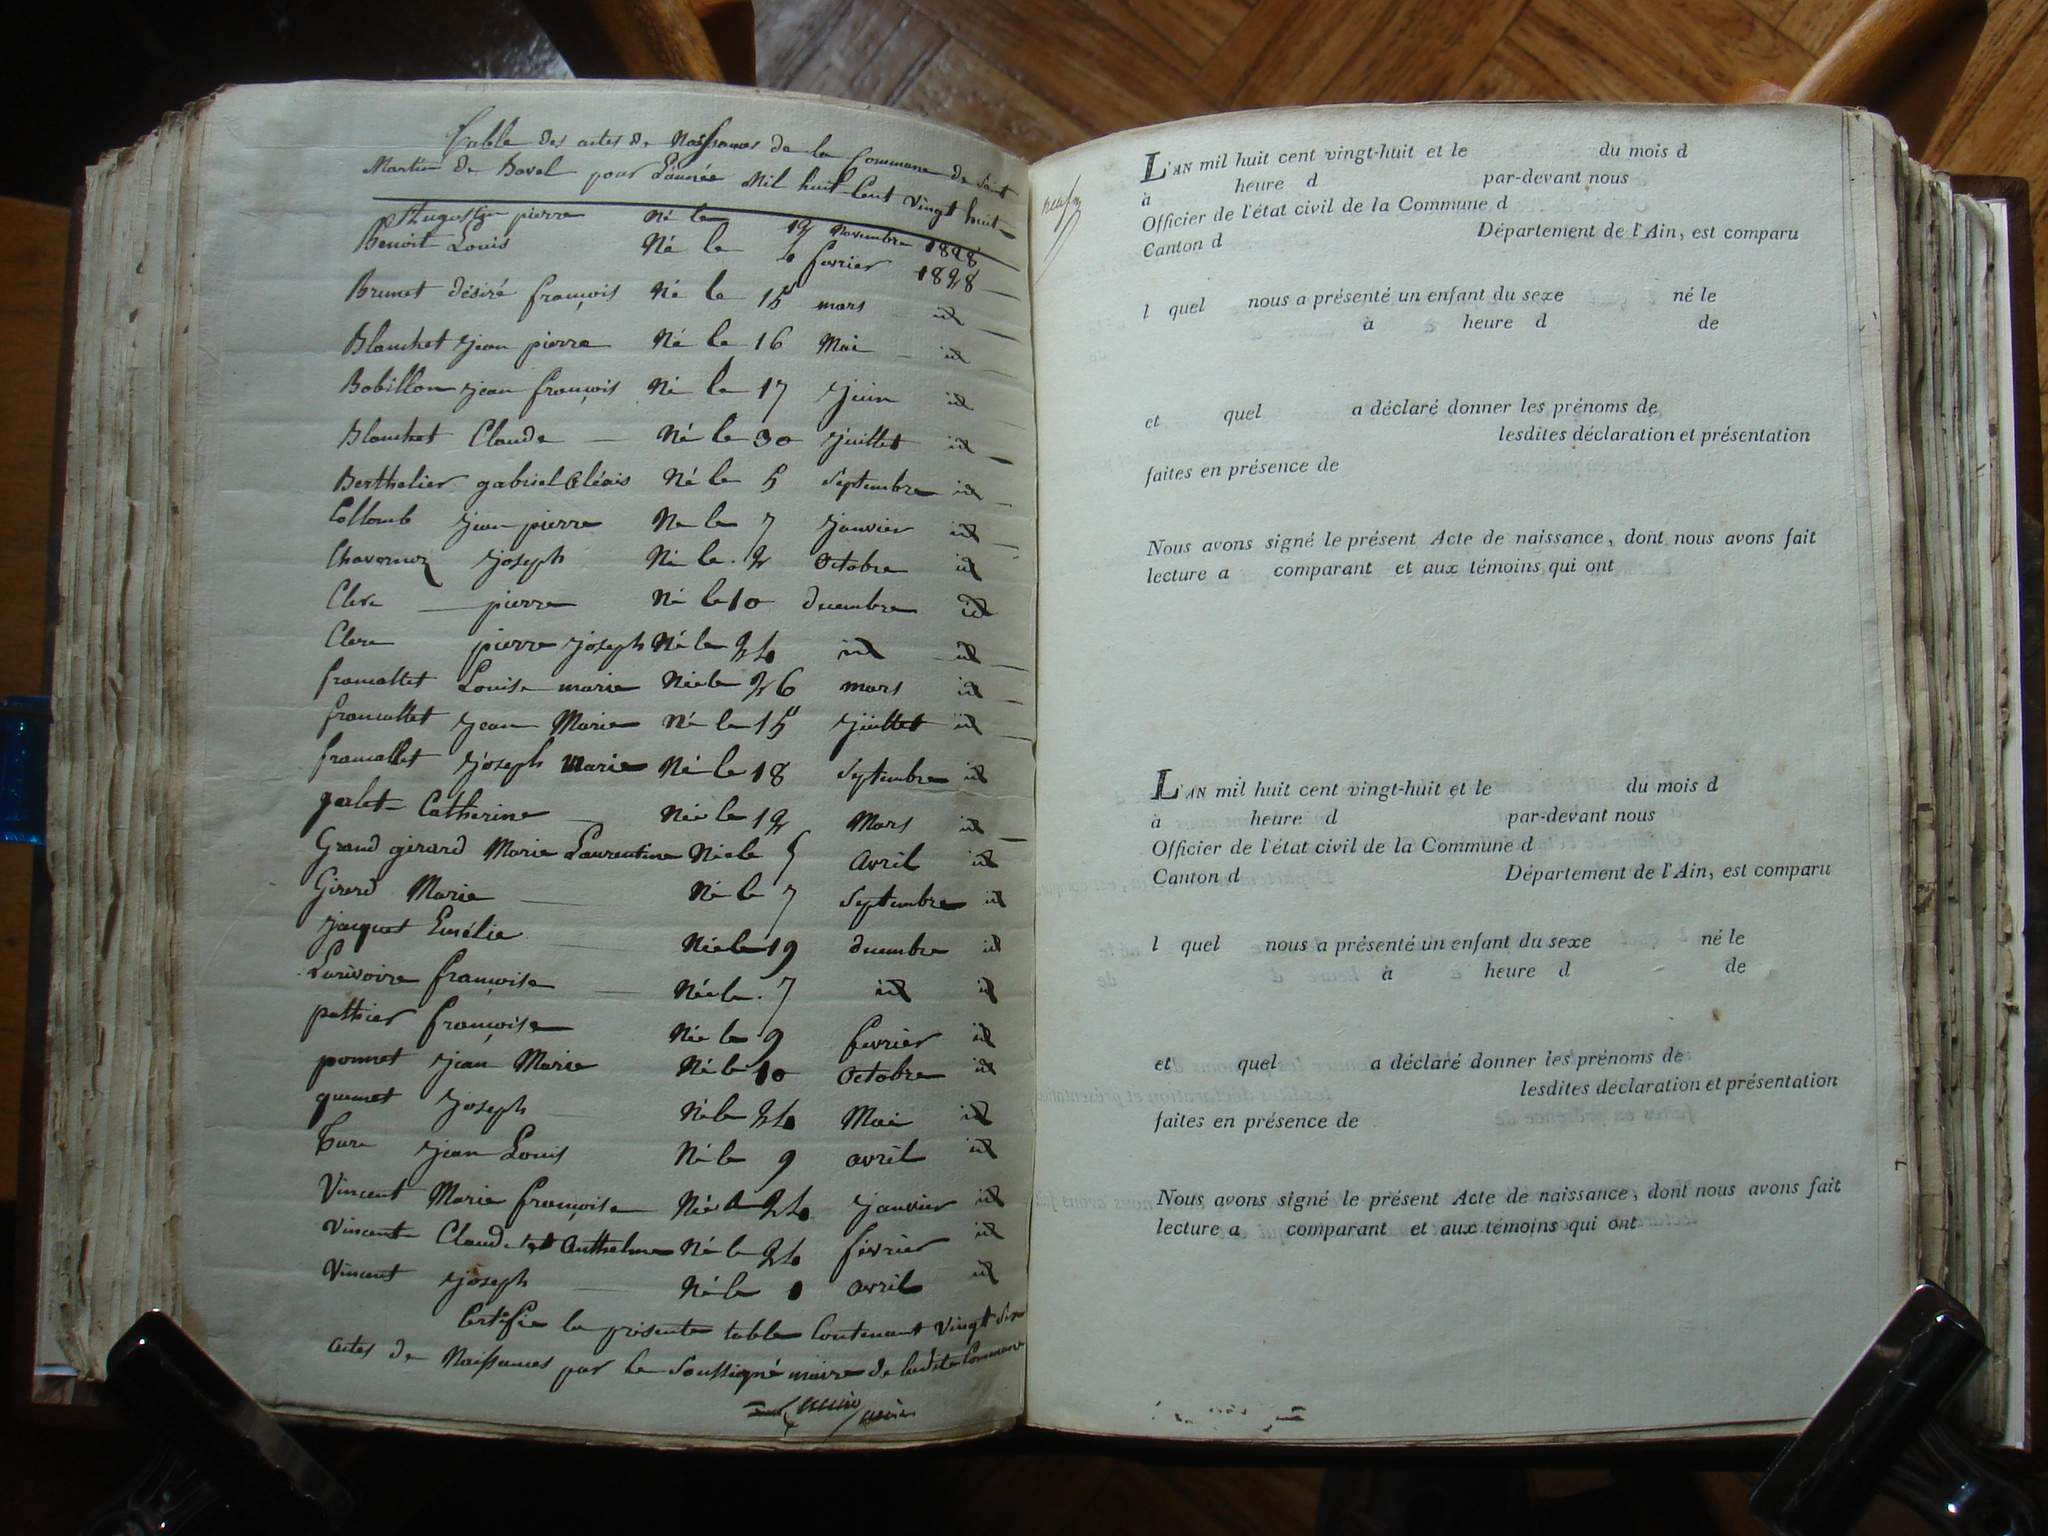 Table des actes de Naissances de la Commune de Saint
Martin de Bavel pour L'année Mil huit Cent Vingt huit
Augustin pierre Né le 12 Novembre 1828
Benoit Louis Né le 4 fevrier 1828
Brunet désiré françois Né le 15 mars id
Blanchet jean pierre Né le 16 Mai id
Bobillon jean françois Né le 17 juin id
Blanchet Claude Né le 30 juillet id
Berthelier gabriel Né le 5 Septembre id
Collomb jean pierre Né le 7 janvier id
Chavornoz joseph Né le 2 Octobre id
Clerc pierre Né le 10 decembre id
Clerc pierre joseph Né le 24 id id
francallet Louise marie Née le 26 mars id
francallet jean Marie Né le 15 juillet id
francallet joseph Marie Né le 18 Septembre id
garlet Catherine Née le 12 Mars id
Grand girard Marie Laurentine Née le 5 Avril id
Girard Marie Né le 7 Septembre id
jaquet Emélie Née le 19 decembre id
Larivoire françoise Née le 7 id id
pathier françoise Née le 9 fevrier id
ponnet jean Marie Né le 10 Octobre id
joseph Né le 24 Mai id
jean Louis Né le 9 avril id
Vincent Marie françoise Née le 24 janvier id
Vincent Claude Anthelme Né le 24 fevrier id
Vincent joseph Né le avril id
Certifie la présente table Contenant Vingt Six
actes de Naissances par le Soussigné maire de ladite Commune
L'AN mil huit cent vingt-huit et le du mois d
à heure d par-devant nous
Officier de l'état civil de la Commune d
Canton d Département de l'Ain, est comparu
l quel nous a présenté un enfant du sexe né le
à heure d de
et quel a déclaré donner les prénoms de
lesdites déclaration et présentation
faites en présence de
Nous avons signé le présent Acte de naissance, dont nous avons fait
lecture a comparant et aux témoins qui ont
L'AN mil huit cent vingt-huit et le du mois d
à heure d par-devant nous
Officier de l'état civil de la Commune d
Canton d Département de l'Ain, est comparu
l quel nous a présenté un enfant du sexe né le
à heure d de
et quel a déclaré donner les prénoms de
lesdites déclaration et présentation
faites en présence de
Nous avons signé le présent Acte de naissance, dont nous avons fait
lecture a comparant et aux témoins qui ont